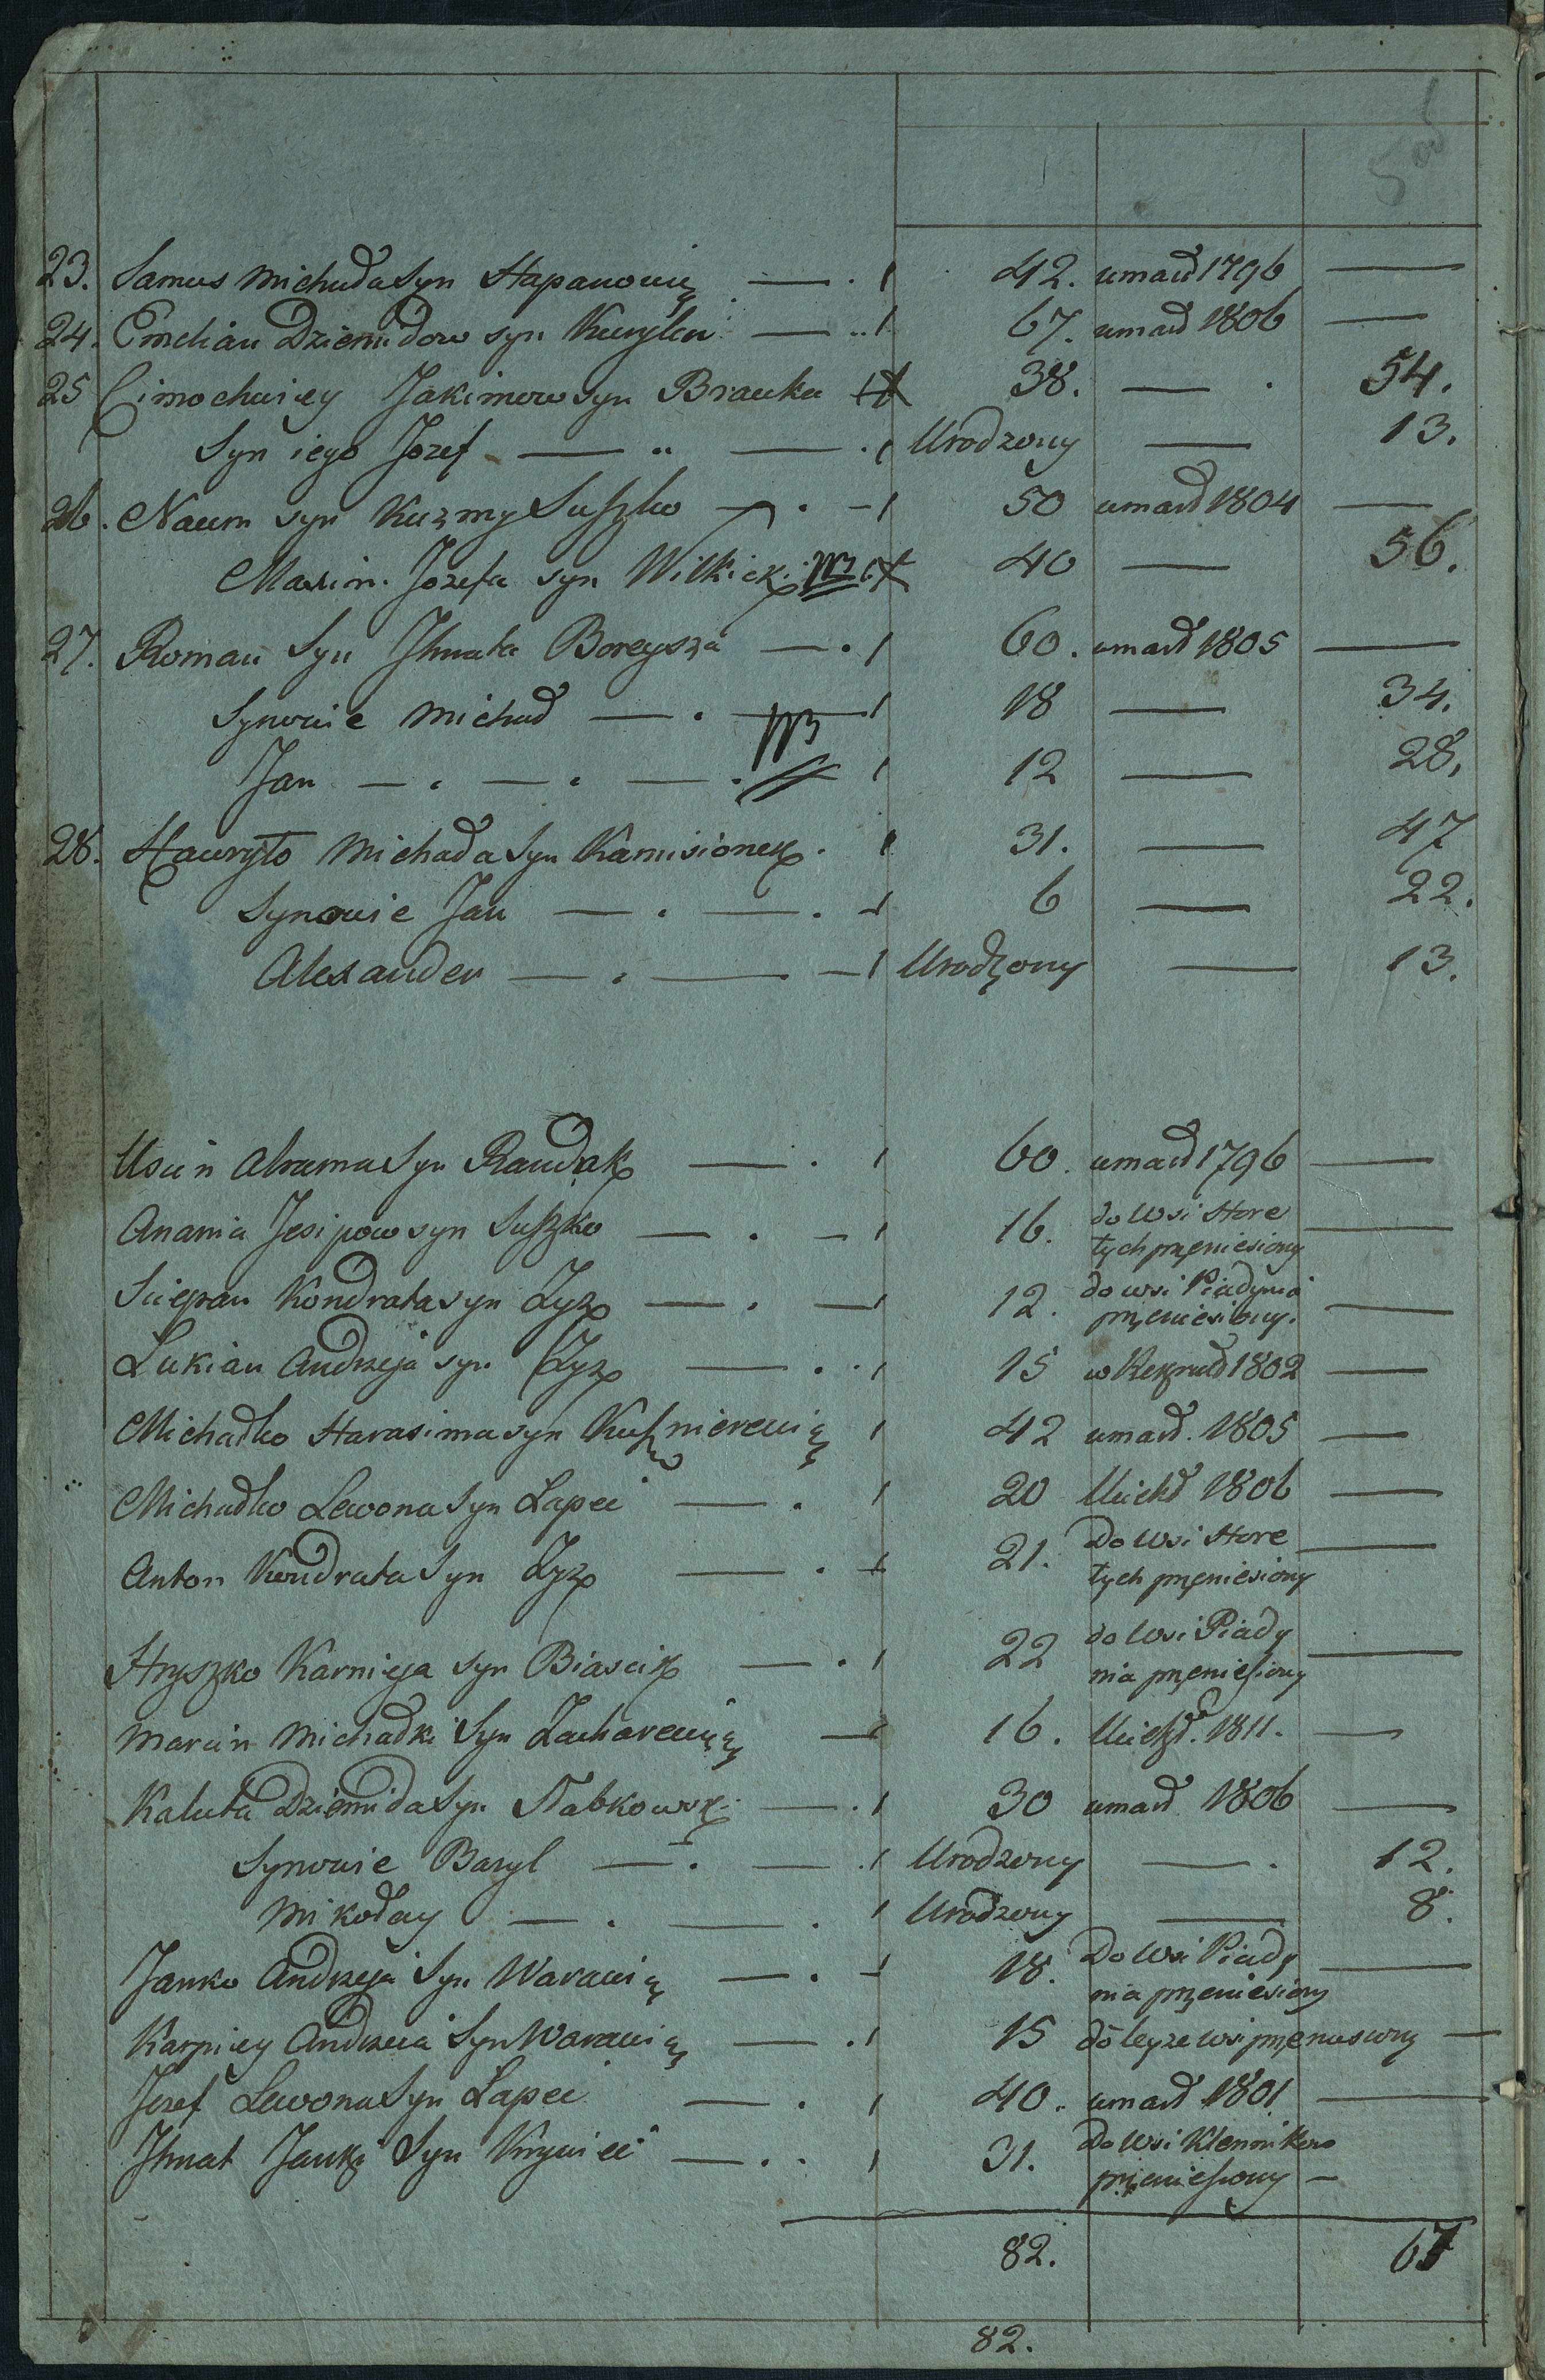 5 ob
23. Samus Michała Syn Stapanowicz — . 1 42. umarł 1796 —
24. Emelian Dziemidow syn Kurylen — .. 1 67. umarł 1806 —
25 Cimochwiey Jakimow Syn Brauka 1 38. — . 54.
Syn iego Jozef — .. — . 1 Urodzony — 13.
26. Naum syn Kuzmy Suszko — . - 1 50 umarł 1804 —
Maxim. Jozefa syn Wilkick. 1 40 — 56.
27. Roman Syn Ihnata Boreysza — . 1 60. umarł 1805 —
Synowie Michał — . — 1 18 — 34.
Jan — . — . — . 1 12 — 28.
28. Hawryło Michała Syn Kamisionek . 1 31. — 47
Synowie Jan — . — . - 1 6 — 22.
Alexander — . — - 1 Urodzony — 13.
Uscin Abrama Syn Raudak — . 1 60. umarł 1796 —
Anania Jesipow syn Suszko — . - 1 16. do wsi Hore
łych przeniesiony —
Sciepan Kondrata syn Zyz — . - 1 12. do wsi Piadynia
przeniesiony. —
Lukian Andrzeja syn Zyz — . . 1 15 w Rekruci 1802 —
Michałko Harasima syn Kusznierewicz 1 42 umarł. 1805 —
Michałko Lewona Syn Łapeć — . 1 20 Uciekł 1806 —
Anton Kondrata Syn Zyz — . 1 21. Do wsi Hore
łych przeniesiony —
Hryszko Karnieja syn Biascik — . 1 22 do wsi Piady
nia przeniesiony —
Marcin Michałki Syn Zacharewicz — 16. Uciekł. 1811. —
Kaluta Dziemida Syn Słabkowsk. — . 1 30 umarł 1806 —
Synowie Bazyl — . — . 1 Urodzony — . 12.
Mikołay — . — . 1 Urodzony — 8.
Janko Andrzeja Syn Warawicz — . - 1 18. Do wsi Piady
nia przeniesiony —
Karpiey Andrzeia Syn Warawicz — . 1 15 do teyze wsi przeniesiony —
Jozef Lewona Syn Łapeć — . 1 40. umarł 1801 —
Ihnat Janki Syn Krywiec — . . 1 31. Do wsi Klennikow
przeniesiony -
82. 67
82.